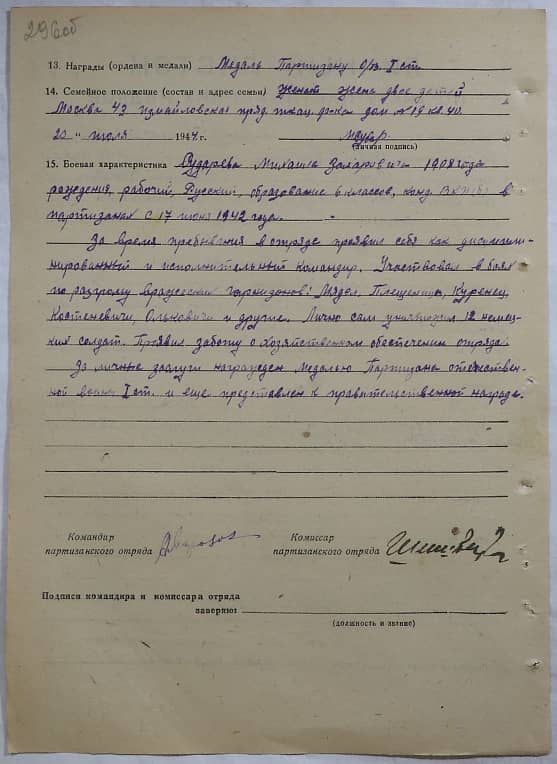 296об
13. Награды (ордена и медали) Медаль Партизану О/в. I ст.
14. Семейное положение (состав и адрес семьи) женат жена двое детей
Москва 43 Измайловская пряд. ткац. ф-ка дом № 19 кв. 40.
20 " июля 1944 г.
(личная подпись)
15. Боевая характеристика Сударева Михаила Захаровича 1908 года
рождения, рабочий, Русский, образование 6 классов, канд. ВКП(б) в
партизанах с 17 июня 1942 года.
За время пребывания в отряде проявил себя как дисципли-
нированный и исполнительный командир. Участвовал в боях
по разгрому вражеских гарнизонов: Мядел, Плещеницы, Куренец,
Костеневичи, Ольковичи и другие. Лично сам уничтожил 12 немец-
ких солдат. Проявил заботу о хозяйственном обеспечении отряда.
За личные заслуги награжден Медалью Партизану отечествен-
ной войны I ст. и еще представлен к правительственной награде.
Командир
партизанского отряда
Комиссар
партизанского отряда
Подписи командира и комиссара отряда
заверяю:
(должность и звание)